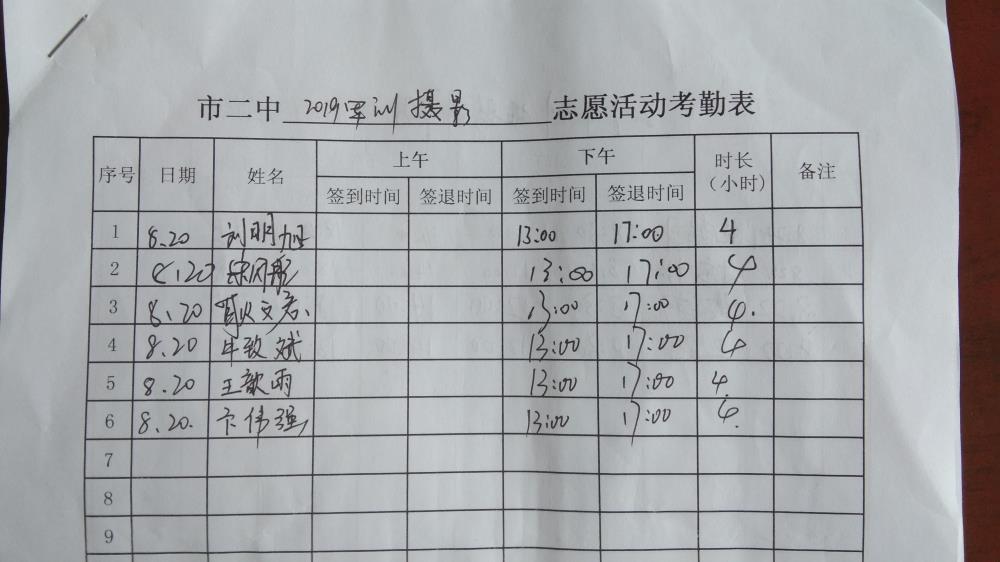 市二中 2019军训 摄影 志愿活动考勤表
序号 日期 姓名 上午 下午 时长（小时） 备注
签到时间 签退时间 签到时间 签退时间
1 8.20 刘明旭 13:00 17:00 4
2 13:00 17:00 4
3 8.20 13:00 17:00 4.
4 8.20 牛致斌 13:00 17:00 4
5 8.20 王歆雨 13:00 17:00 4.
6 8.20. 卞伟强 13:00 17:00 4.
7
8
9